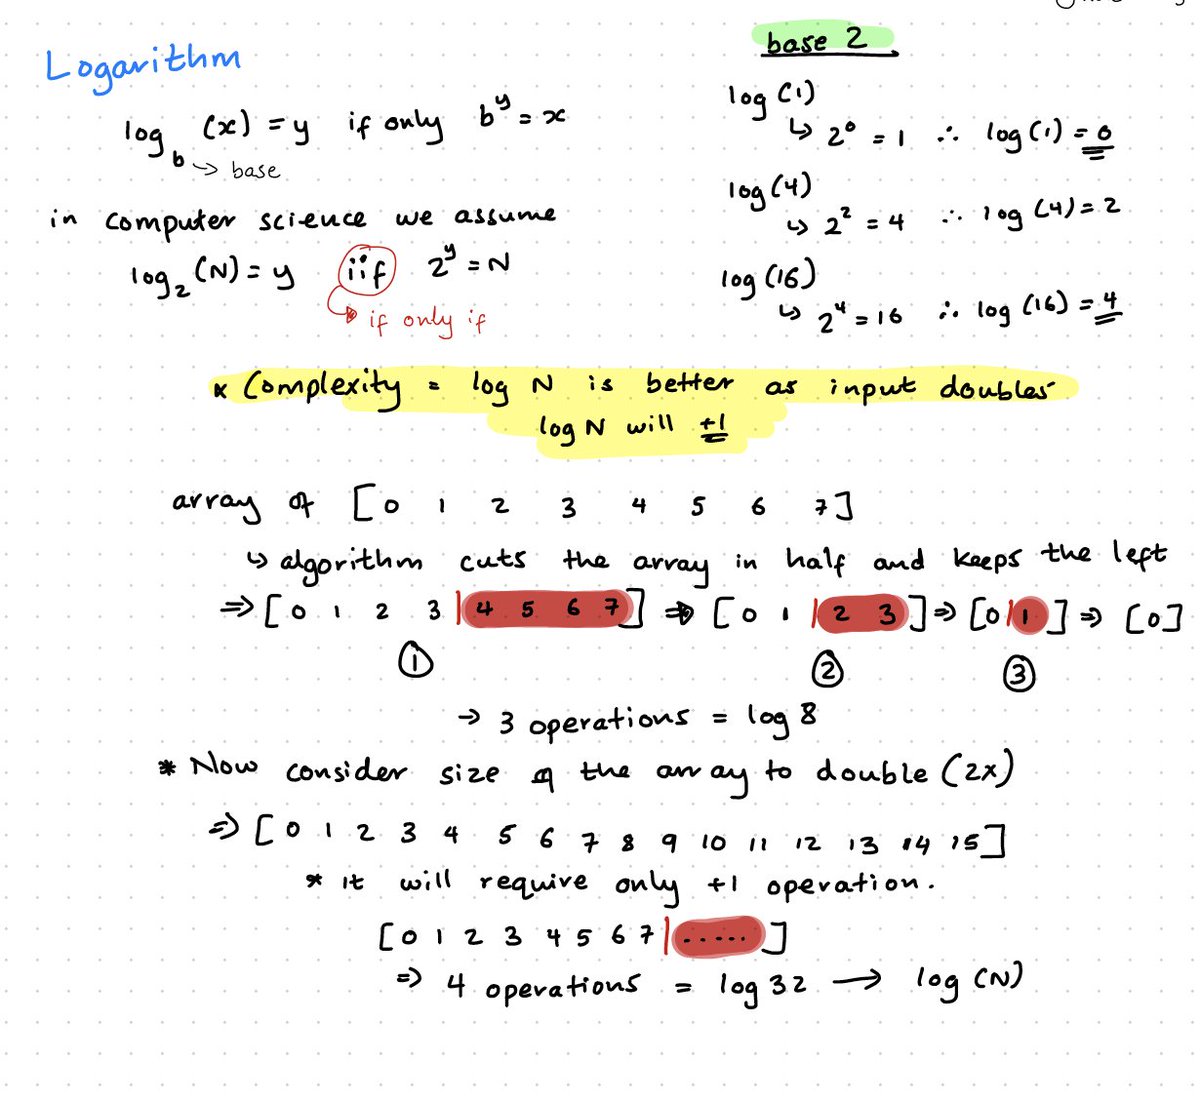 Logarithm
log_b (x) = y if only b^y = x
b → base
in computer science we assume
log₂ (N) = y iif 2^y = N
if only if
base 2
log (1)
↳ 2⁰ = 1 ∴ log (1) = 0
log (4)
↳ 2² = 4 ∴ log (4) = 2
log (16)
↳ 2⁴ = 16 ∴ log (16) = 4
* Complexity = log N is better as input doubles
log N will +1
array of [0 1 2 3 4 5 6 7]
↳ algorithm cuts the array in half and keeps the left
⇒ [0 1 2 3 | 4 5 6 7] ⇒ [0 1 | 2 3] ⇒ [0 | 1] ⇒ [0]
① ② ③
→ 3 operations = log 8
* Now consider size of the array to double (2x)
⇒ [0 1 2 3 4 5 6 7 8 9 10 11 12 13 14 15]
* it will require only +1 operation.
[0 1 2 3 4 5 6 7 | .....]
⇒ 4 operations = log 32 → log (N)